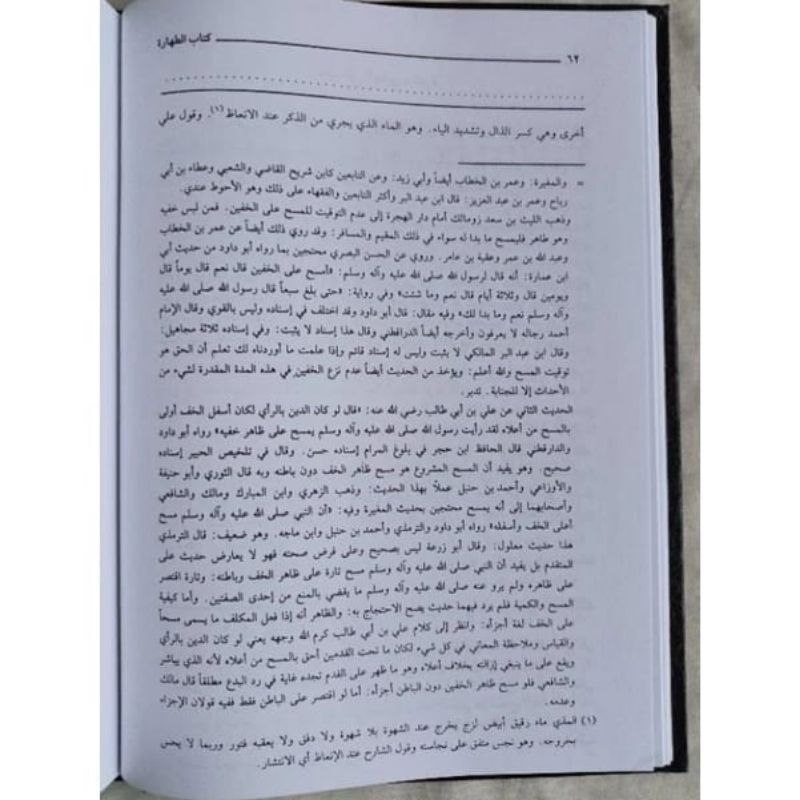 ٦٢ كتاب الطهارة
أخرى وهي كسر الذال وتشديد الياء. وهو الماء الذي يجري من الذكر عند الانعاظ(١). وقول علي
= والمغيرة: وعمر بن الخطاب أيضاً وأبي زيد: وعن التابعين كابن شريح القاضي والشعبي وعطاء بن أبي
رباح وعمر بن عبد العزيز: قال ابن عبد البر وأكثر التابعين والفقهاء على ذلك وهو الأحوط عندي.
وذهب الليث بن سعد زومالك أمام دار الهجرة إلى عدم التوقيت للمسح على الخفين. فمن لبس خفيه
وهو طاهر فليمسح ما بدا له سواء في ذلك المقيم والمسافر: وقد روي ذلك أيضاً عن عمر بن الخطاب
وعبد الله بن عمر وعقبة بن عامر. وروي عن الحسن البصري محتجين بما رواه أبو داود من حديث أبي
ابن عمارة: أنه قال لرسول الله صلى الله عليه وآله وسلم: «أمسح على الخفين قال نعم قال يوماً قال
ويومين قال وثلاثة أيام قال نعم وما شئت» وفي رواية: «حتى بلغ سبعاً قال رسول الله صلى الله عليه
وآله وسلم نعم وما بدا لك» وفيه مقال: قال أبو داود وقد اختلف في إسناده وليس بالقوي وقال الإمام
أحمد رجاله لا يعرفون وأخرجه أيضاً الدراقطني وقال هذا إسناد لا يثبت: وفي إسناده ثلاثة مجاهيل:
وقال ابن عبد البر المالكي لا يثبت وليس له إسناد قائم وإذا علمت ما أوردناه لك تعلم أن الحق هو
توقيت المسح والله أعلم: ويؤخذ من الحديث أيضاً عدم نزع الخفين في هذه المدة المقدرة لشيء من
الأحداث إلا للجنابة. تدبر.
الحديث الثاني عن علي بن أبي طالب رضي الله عنه: «قال لو كان الدين بالرأي لكان أسفل الخف أولى
بالمسح من أعلاه لقد رأيت رسول الله صلى الله عليه وآله وسلم يمسح على ظاهر خفيه» رواه أبو داود
والدارقطني قال الحافظ ابن حجر في بلوغ المرام إسناده حسن. وقال في تلخيص الحبير إسناده
صحيح. وهو يفيد أن المسح المشروع هو مسح ظاهر الخف دون باطنه وبه قال الثوري وأبو حنيفة
والأوزاعي وأحمد بن حنبل عملاً بهذا الحديث: وذهب الزهري وابن المبارك ومالك والشافعي
وأصحابهما إلى أنه يمسح محتجين بحديث المغيرة وفيه: «أن النبي صلى الله عليه وآله وسلم مسح
أعلى الخف وأسفله» رواه أبو داود والترمذي وأحمد بن حنبل وابن ماجه. وهو ضعيف: قال الترمذي
هذا حديث معلول: وقال أبو زرعة ليس بصحيح وعلى فرض صحته فهو لا يعارض حديث على
المتقدم بل يفيد أن النبي صلى الله عليه وآله وسلم مسح تارة على ظاهر الخف وباطنه: وتارة اقتصر
على ظاهره ولم يرو عنه صلى الله عليه وآله وسلم ما يقضي بالمنع من إحدى الصفتين. وأما كيفية
المسح والكمية فلم يرد فيهما حديث يصح الاحتجاج به: والظاهر أنه إذا فعل المكلف ما يسمى مسحاً
على الخف لغة أجزأه: وانظر إلى كلام علي بن أبي طالب كرم الله وجهه يعني لو كان الدين بالرأي
والقياس وملاحظة المعاني في كل شيء لكان ما تحت القدمين أحق بالمسح من أعلاه لأنه الذي يباشر
ويقع على ما ينبغي إزالته بخلاف أعلاه وهو ما ظهر على القدم تجده غاية في رد البدع مطلقاً قال مالك
والشافعي فلو مسح ظاهر الخفين دون الباطن أجزأه: أما لو اقتصر على الباطن فقط ففيه قولان الإجزاء
وعدمه.
(١) المذي ماء رقيق أبيض لزج يخرج عند الشهوة بلا شهوة ولا دفق ولا يعقبه فتور وربما لا يحس
بخروجه. وهو نجس متفق على نجاسته وقول الشارح عند الإنعاظ أي الانتشار.